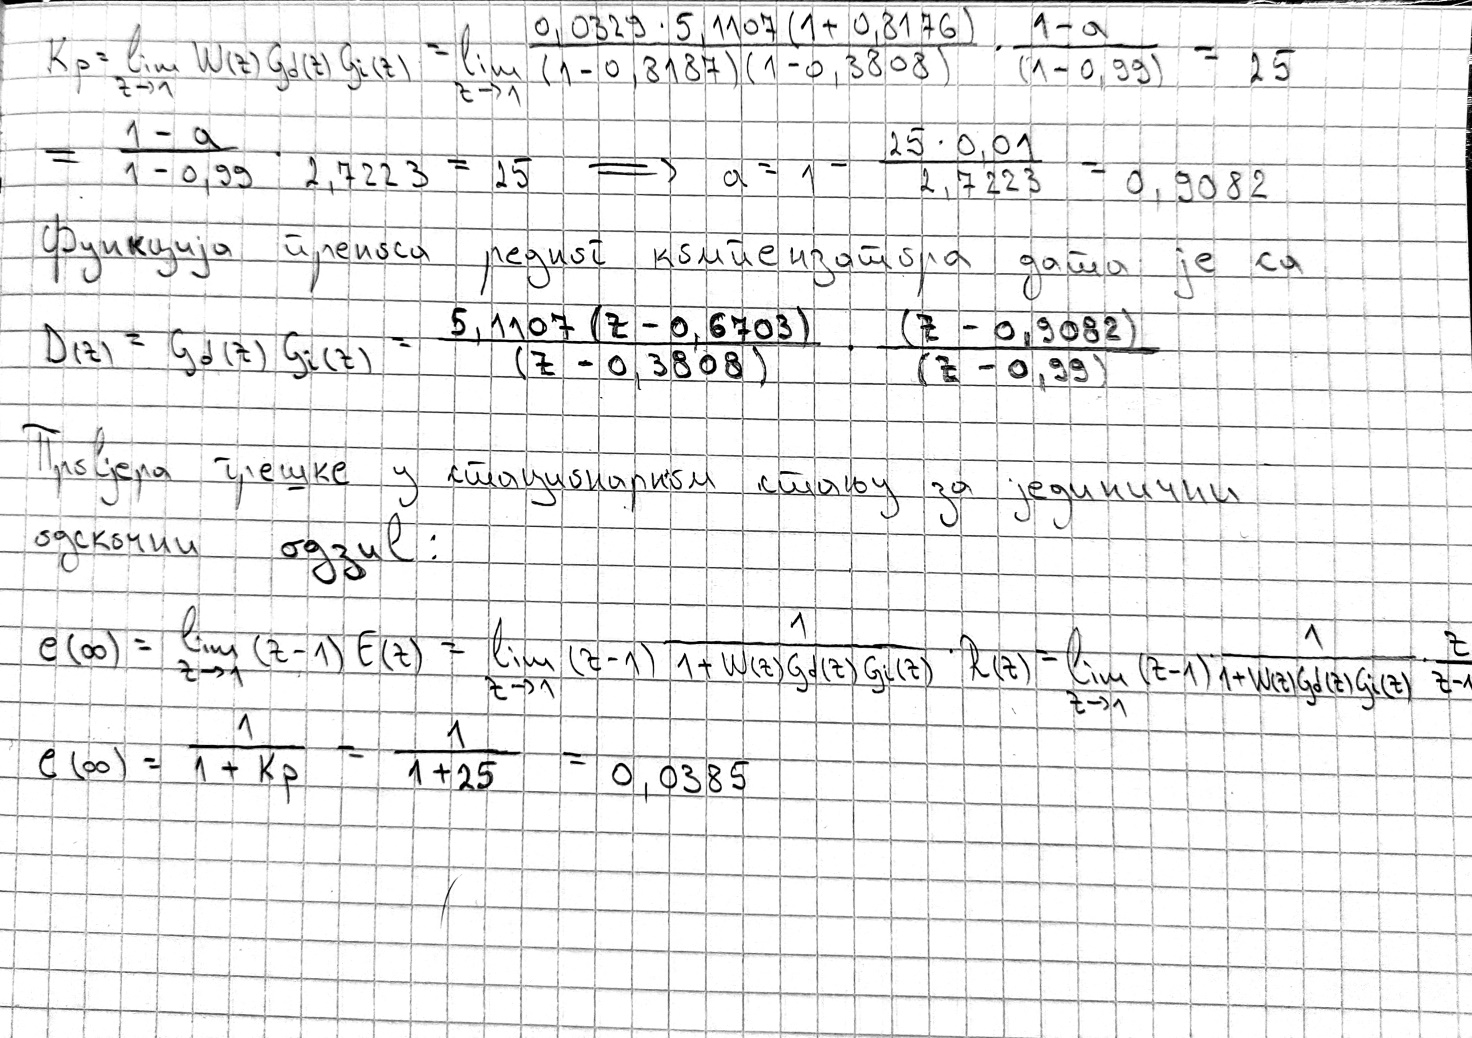 Kp = lim z→1 W(z) Gd(z) Gi(z) = lim z→1 0,0329 · 5,1107 (1 + 0,8176) / (1 - 0,8187)(1 - 0,3808) · 1 - a / (1 - 0,99) = 25
= 1 - a / 1 - 0,99 · 2,7223 = 25 ⟹ a = 1 - 25 · 0,01 / 2,7223 = 0,9082
Функција преноса редног компензатора дата је са
D(z) = Gd(z) Gi(z) = 5,1107 (z - 0,6703) / (z - 0,3808) · (z - 0,9082) / (z - 0,99)
Провјера грешке у стационарном стању за јединични
одскочни одзив:
e(∞) = lim z→1 (z-1) E(z) = lim z→1 (z-1) 1 / 1 + W(z) Gd(z) Gi(z) · R(z) = lim z→1 (z-1) · 1 / 1 + W(z) Gd(z) Gi(z) · z / z-1
e(∞) = 1 / 1 + Kp = 1 / 1 + 25 = 0,0385